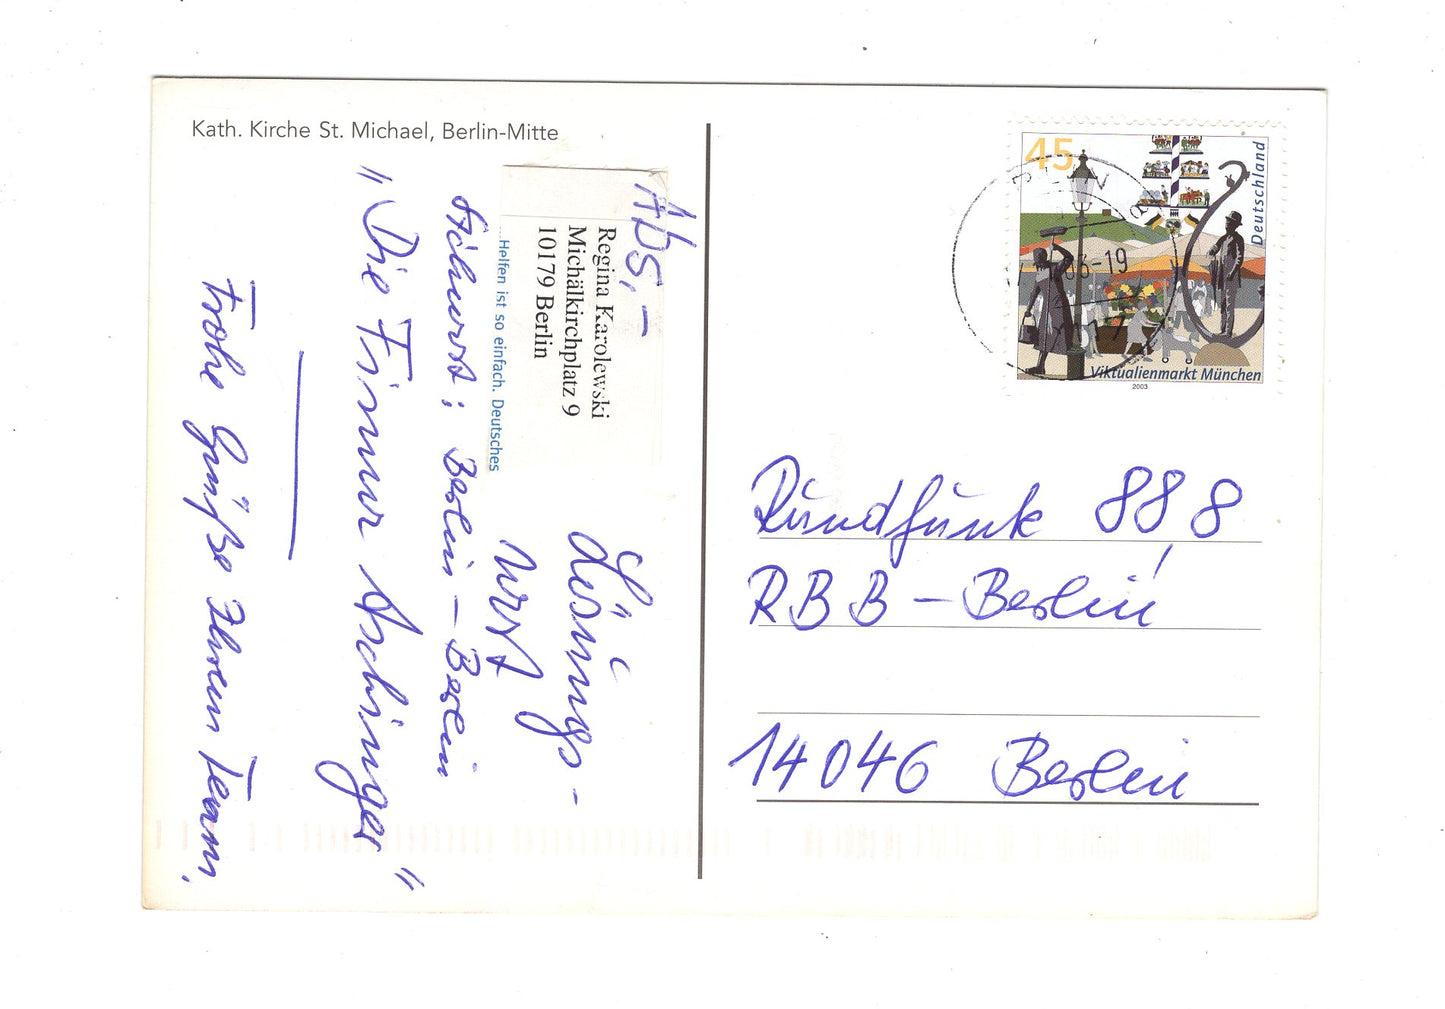 Kath. Kirche St. Michael, Berlin-Mitte
Abs.–
Regina Karolewski
Michälkirchplatz 9
10179 Berlin
Helfen ist so einfach. Deutsches
Lösungs-
wort
Berlin – Berlin
"Die Firmur Aschinger"
Frohe Grüße Ihrem Team.
45
Deutschland
Viktualienmarkt München
2003
-19
Rundfunk 88 8
RBB – Berlin
14046 Berlin